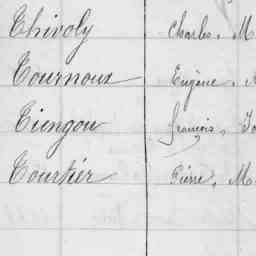 Thivoly Charles. M
Tournoux Eugène.
Tiengou françois. Jo
Tourtier Pierre. M.